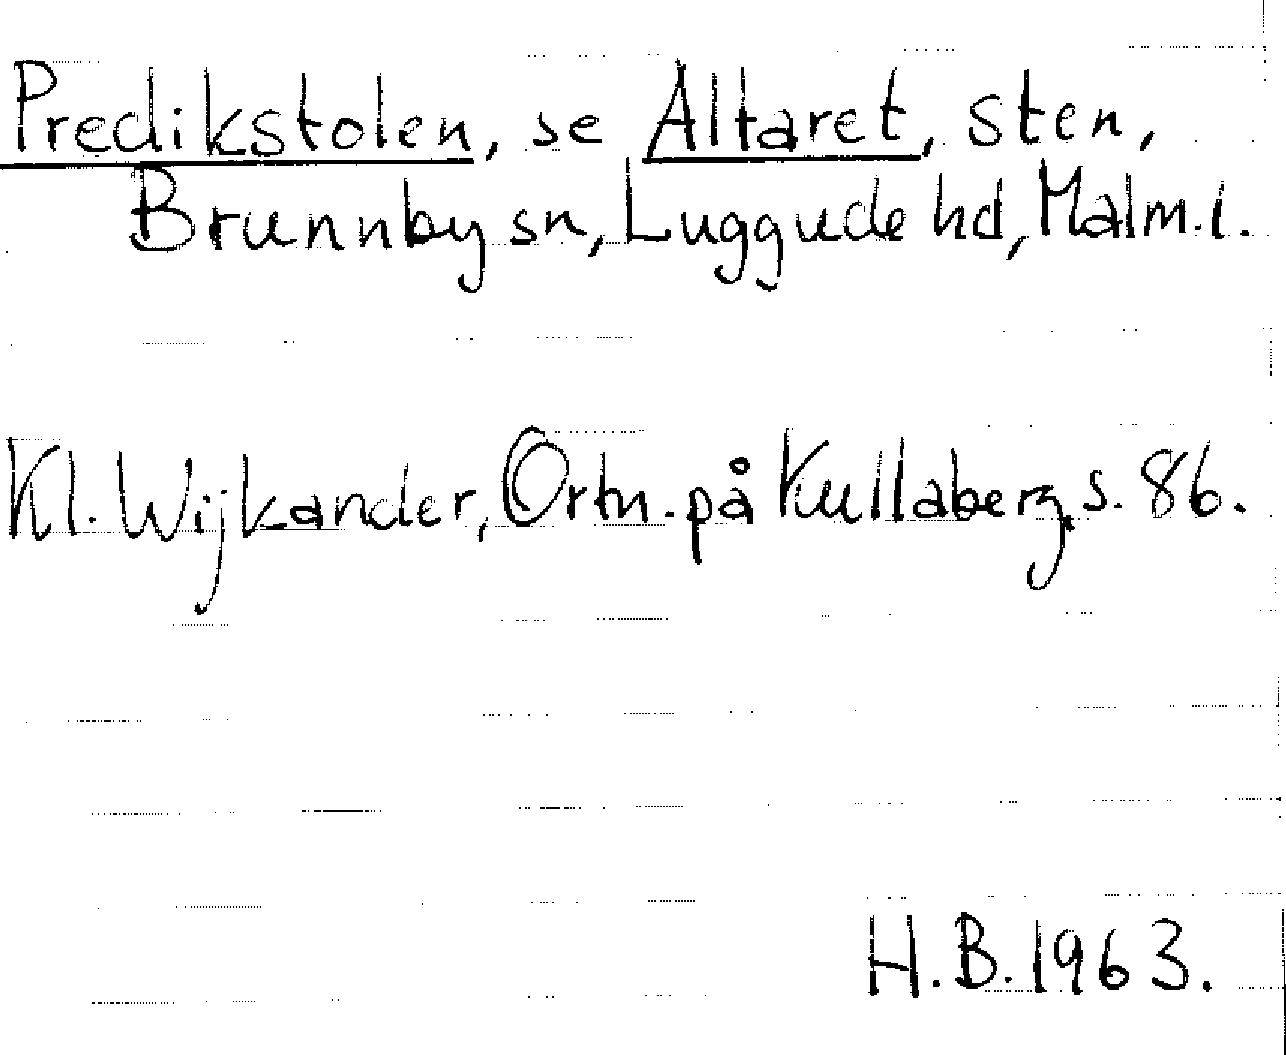 Predikstolen, se Altaret, sten,
Brunnby sn, Luggude hd, Malm. l.
Kl. Wijkander, Ortn. på Kullaberg, s. 86.
H. B. 1963.